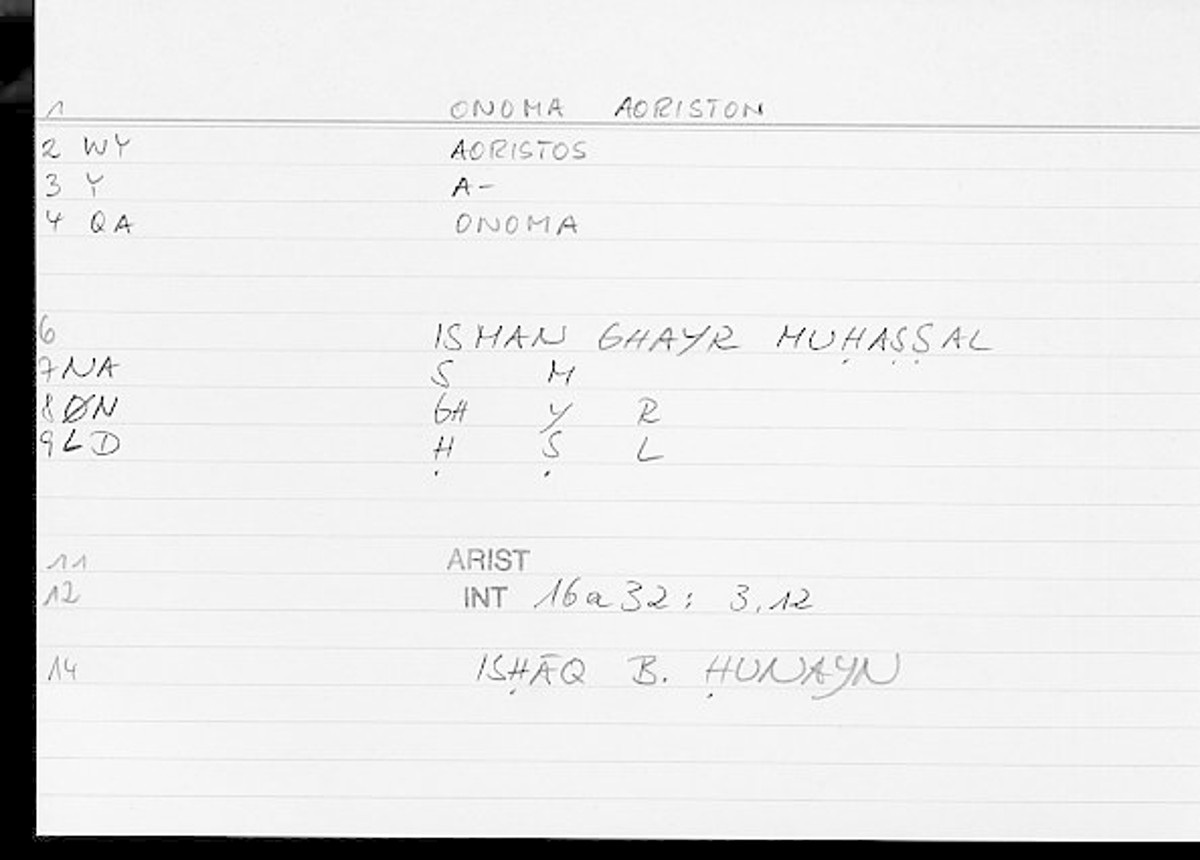 1 ONOMA AORISTON
2 WY AORISTOS
3 Y A-
4 QA ONOMA
6 ISMAN GHAYR MUḤAṢṢAL
7 NA S M
8 ØN GH Y R
9 LD Ḥ Ṣ L
11 ARIST
12 INT 16a32: 3,12
14 ISḤĀQ B. ḤUNAYN